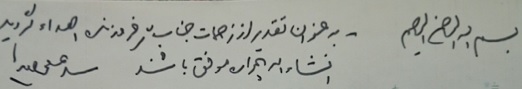 بسم الله الرحمن الرحیم - به عنوان تقدیر از زحمات جناب فروزنش اهداء گردید
انشاء الله همواره موفق باشند